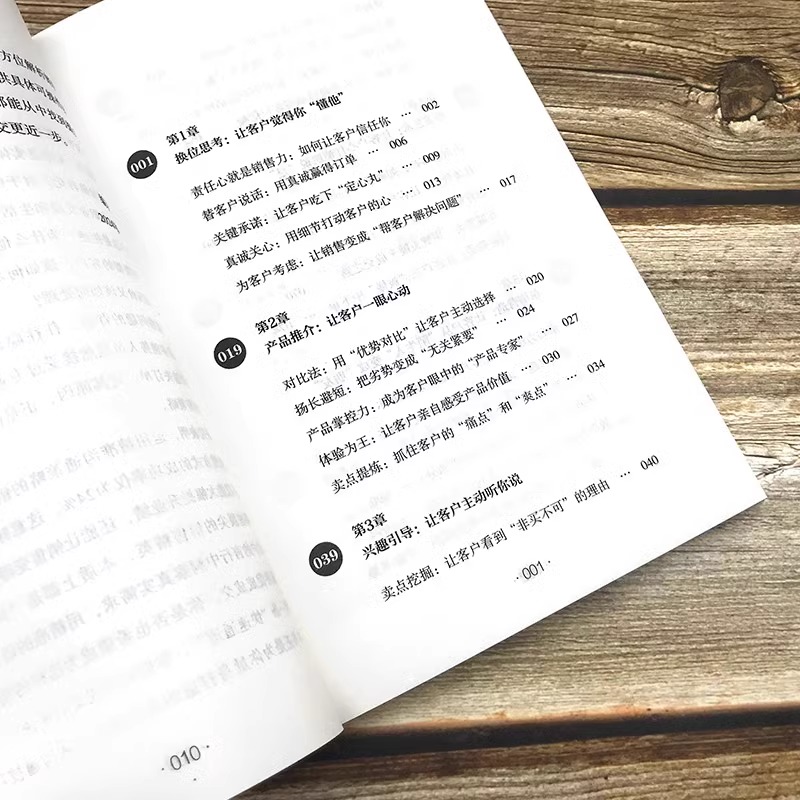 方位解
供具体可
都能从中找到
交更近一步。
010
001
第1章
换位思考：让客户觉得你“懂他”
责任心就是销售力：如何让客户信任你 … 002
替客户说话：用真诚赢得订单 … 006
关键承诺：让客户吃下“定心丸” … 009
真诚关心：用细节打动客户的心 … 013
为客户考虑：让销售变成“帮客户解决问题” … 017
019
第2章
产品推介：让客户一眼心动
对比法：用“优势对比”让客户主动选择 … 020
扬长避短：把劣势变成“无关紧要” … 024
产品掌控力：成为客户眼中的“产品专家” … 027
体验为王：让客户亲自感受产品价值 … 030
卖点提炼：抓住客户的“痛点”和“爽点” … 034
039
第3章
兴趣引导：让客户主动听你说
卖点挖掘：让客户看到“非买不可”的理由 … 040
· 001 ·